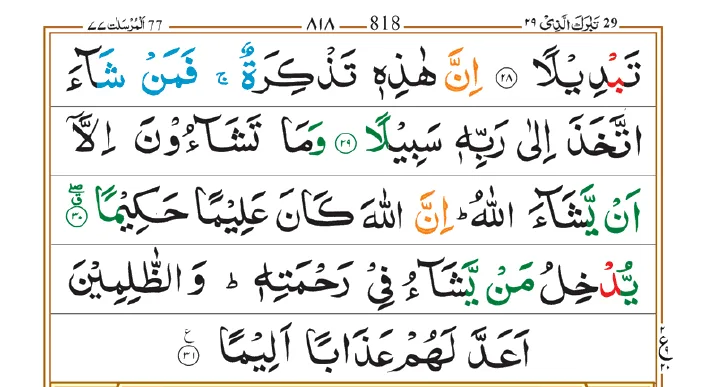 29 تَبٰرَكَ الَّذِیْ ٢٩ 818 ٨١٨ 77 اَلْمُرْسَلٰت ٧٧
تَبْدِیْلًا ۝٢٨ اِنَّ هٰذِهٖ تَذْكِرَةٌ ۚ فَمَنْ شَآءَ
اتَّخَذَ اِلٰی رَبِّهٖ سَبِیْلًا ۝٢٩ وَمَا تَشَآءُوْنَ اِلَّاۤ
اَنْ یَّشَآءَ اللّٰهُ ؕ اِنَّ اللّٰهَ كَانَ عَلِیْمًا حَكِیْمًا ۝٣٠
یُّدْخِلُ مَنْ یَّشَآءُ فِیْ رَحْمَتِهٖ ؕ وَالظّٰلِمِیْنَ
اَعَدَّ لَهُمْ عَذَابًا اَلِیْمًا ۝٣١